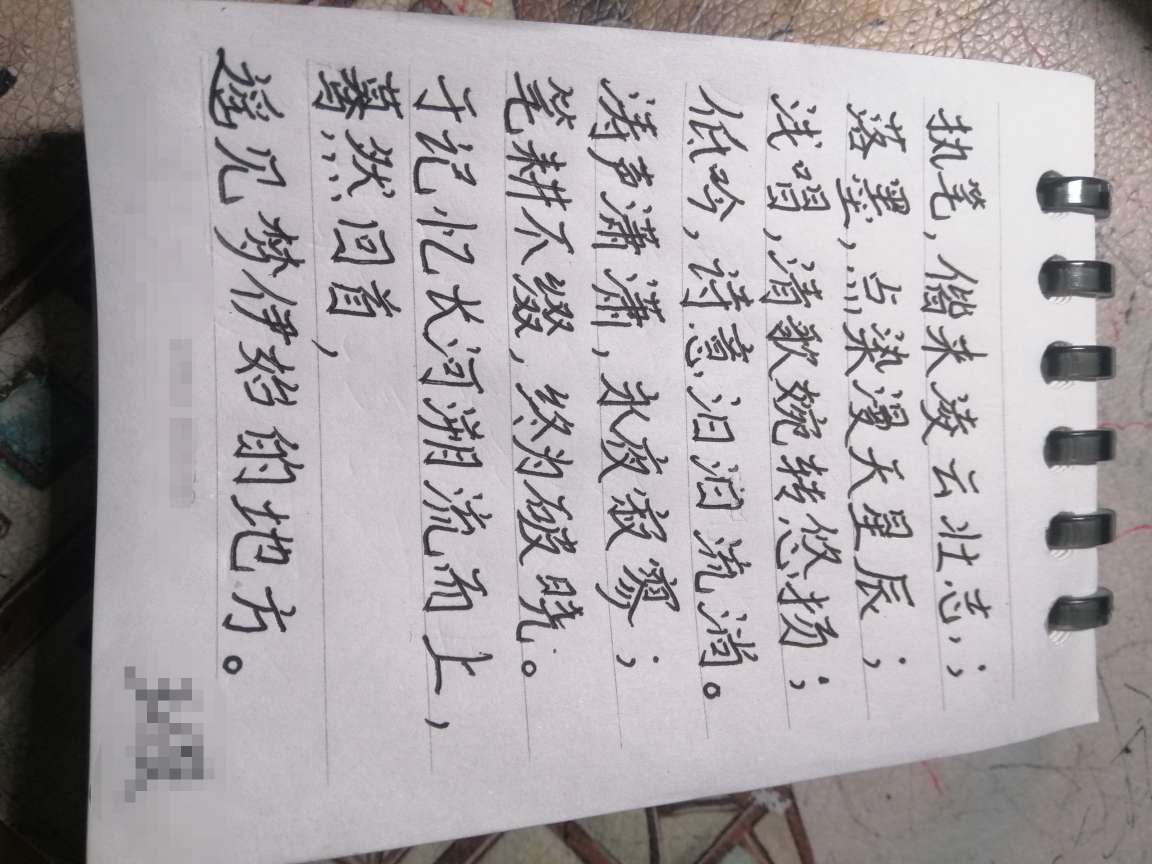 执笔，偕来凌云壮志；
落墨，点染漫天星辰；
浅唱，清歌婉转悠扬；
低吟，诗意汩汩流淌。
涛声潇潇，永夜寂寥；
笔耕不缀，终为破晓。
于记忆长河溯流而上，
蓦然回首，
遥见梦伊始的地方。